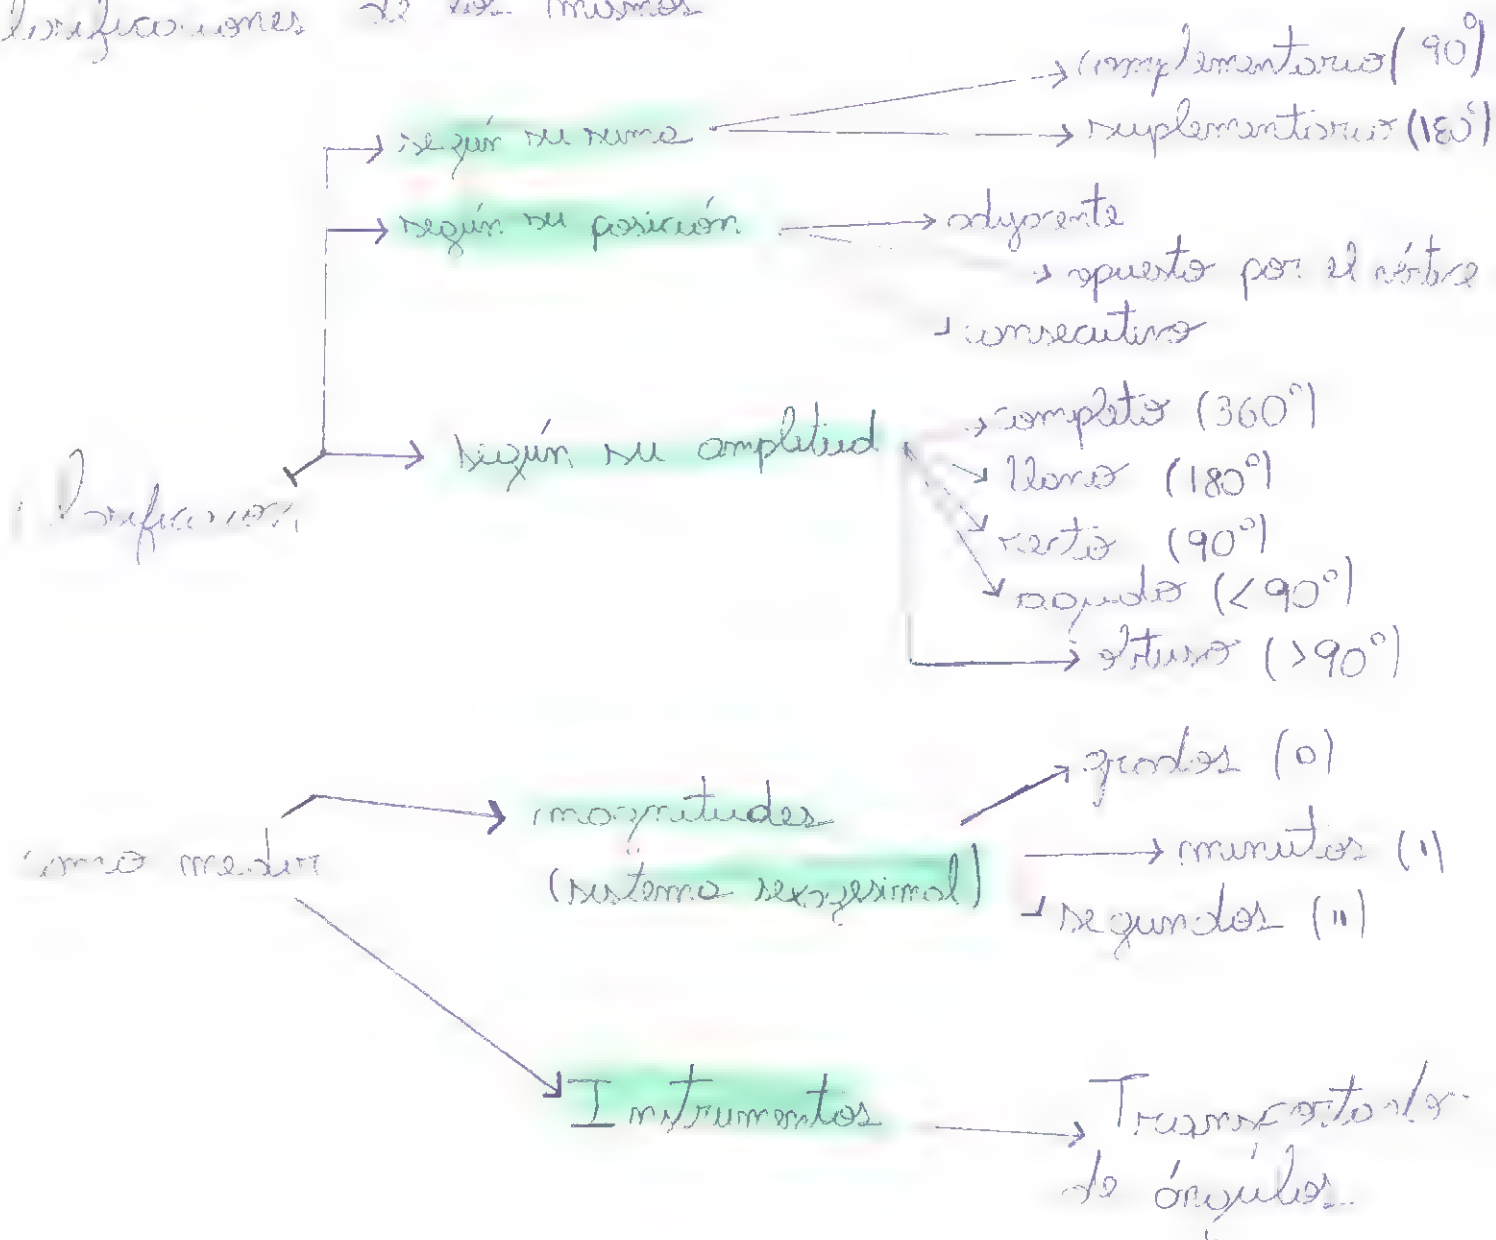 clasificaciones de los mismos
complementario (90°)
según su suma
suplementario (180°)
según su posición
adyacente
opuesto por el vértice
consecutivo
Clasificación
según su amplitud
completo (360°)
llano (180°)
recto (90°)
agudo (<90°)
obtuso (>90°)
como medir
magnitudes
(sistema sexagesimal)
grados (o)
minutos (ı)
segundos (ıı)
Instrumentos
Transportador
de ángulos